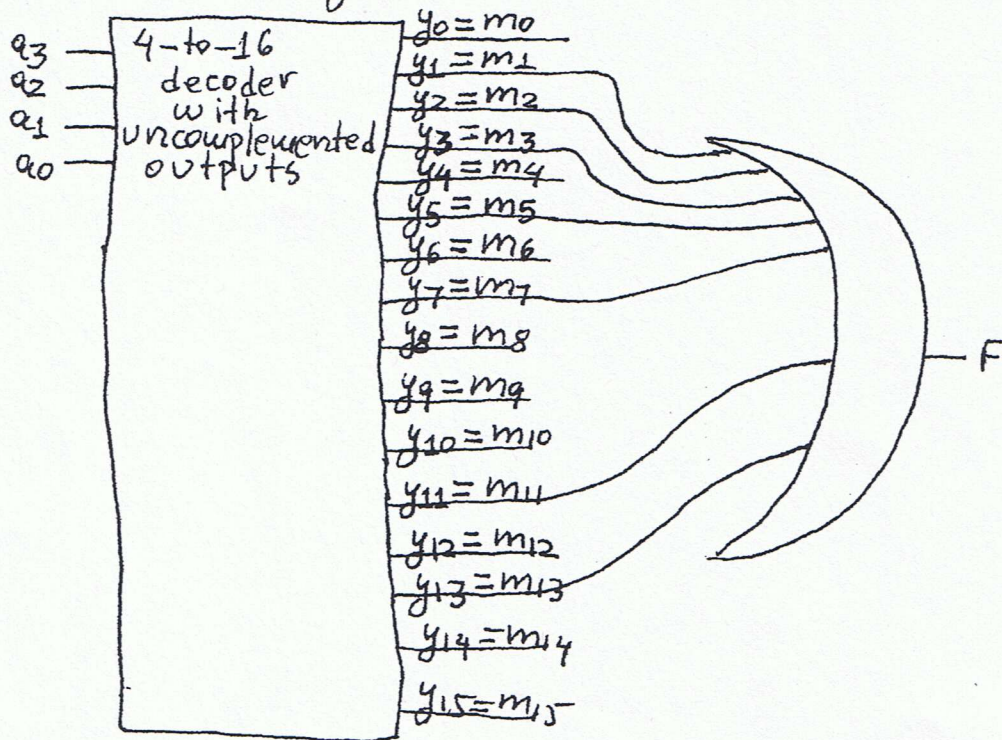 a3
a2
a1
a0
4-to-16
decoder
with
uncomplemented
outputs
y0=m0
y1=m1
y2=m2
y3=m3
y4=m4
y5=m5
y6=m6
y7=m7
y8=m8
y9=m9
y10=m10
y11=m11
y12=m12
y13=m13
y14=m14
y15=m15
F